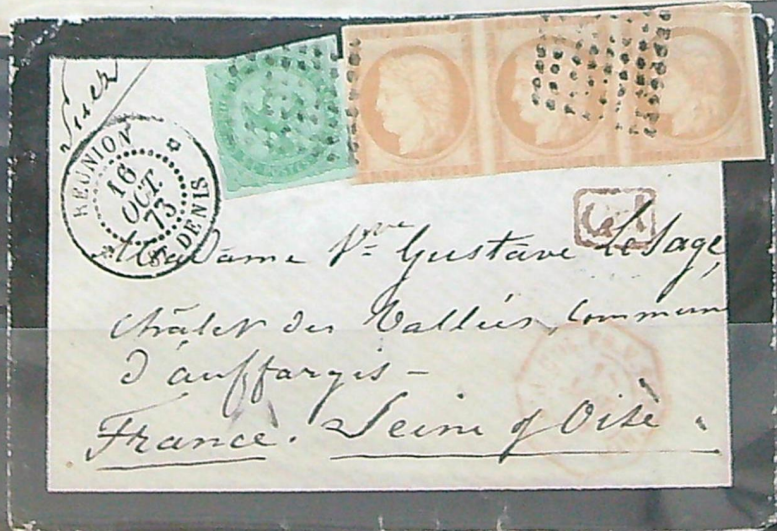 Suez
REUNION
16
OCT.
73
ST DENIS
Madame Vve Gustave Lesage
châlet des Vallées, Commune
d'auffargis –
France. Seine & Oise.